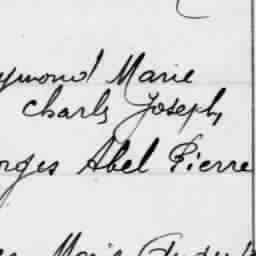 ymond Marie
Charles Joseph,
orges Abel Pierre
Marie